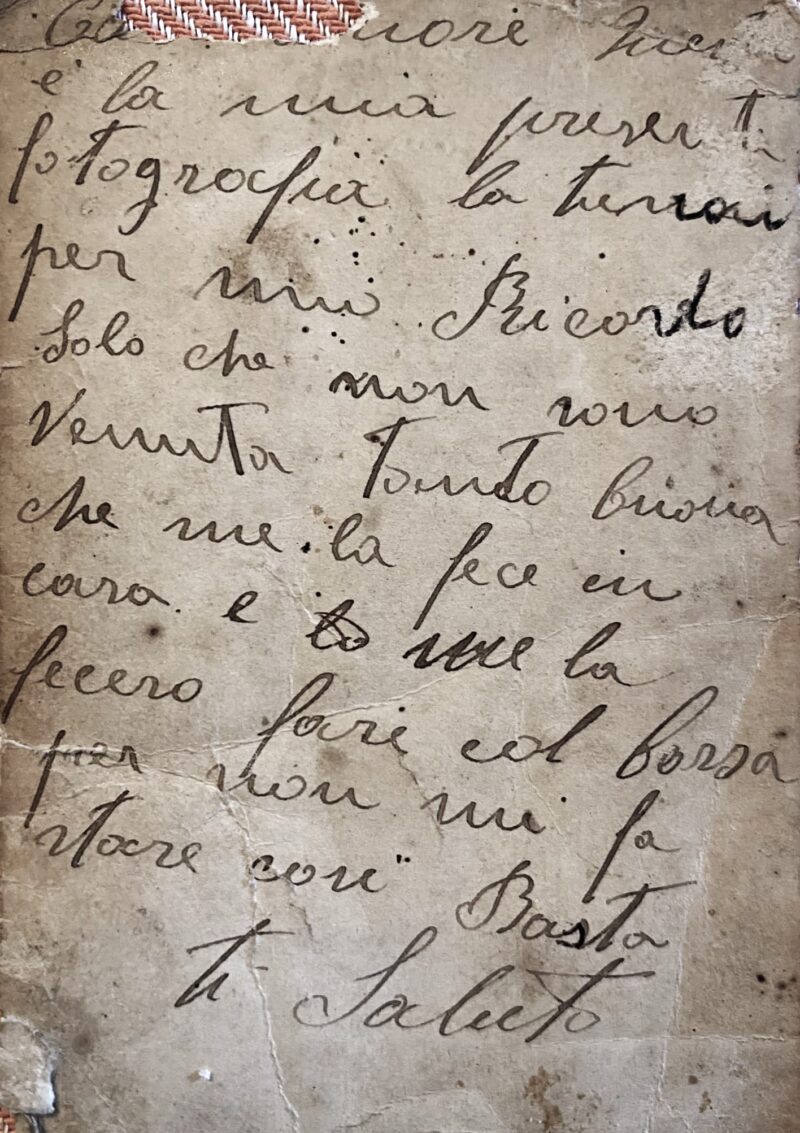 è la mia presenti
fotografia la tierrai
per mio Ricordo
Solo che non sono
venuta tanto buona
che me la fece in
casa e lo me la
fecero fare col borsa
per non mi fa
stare cosi Basta
ti Saluto